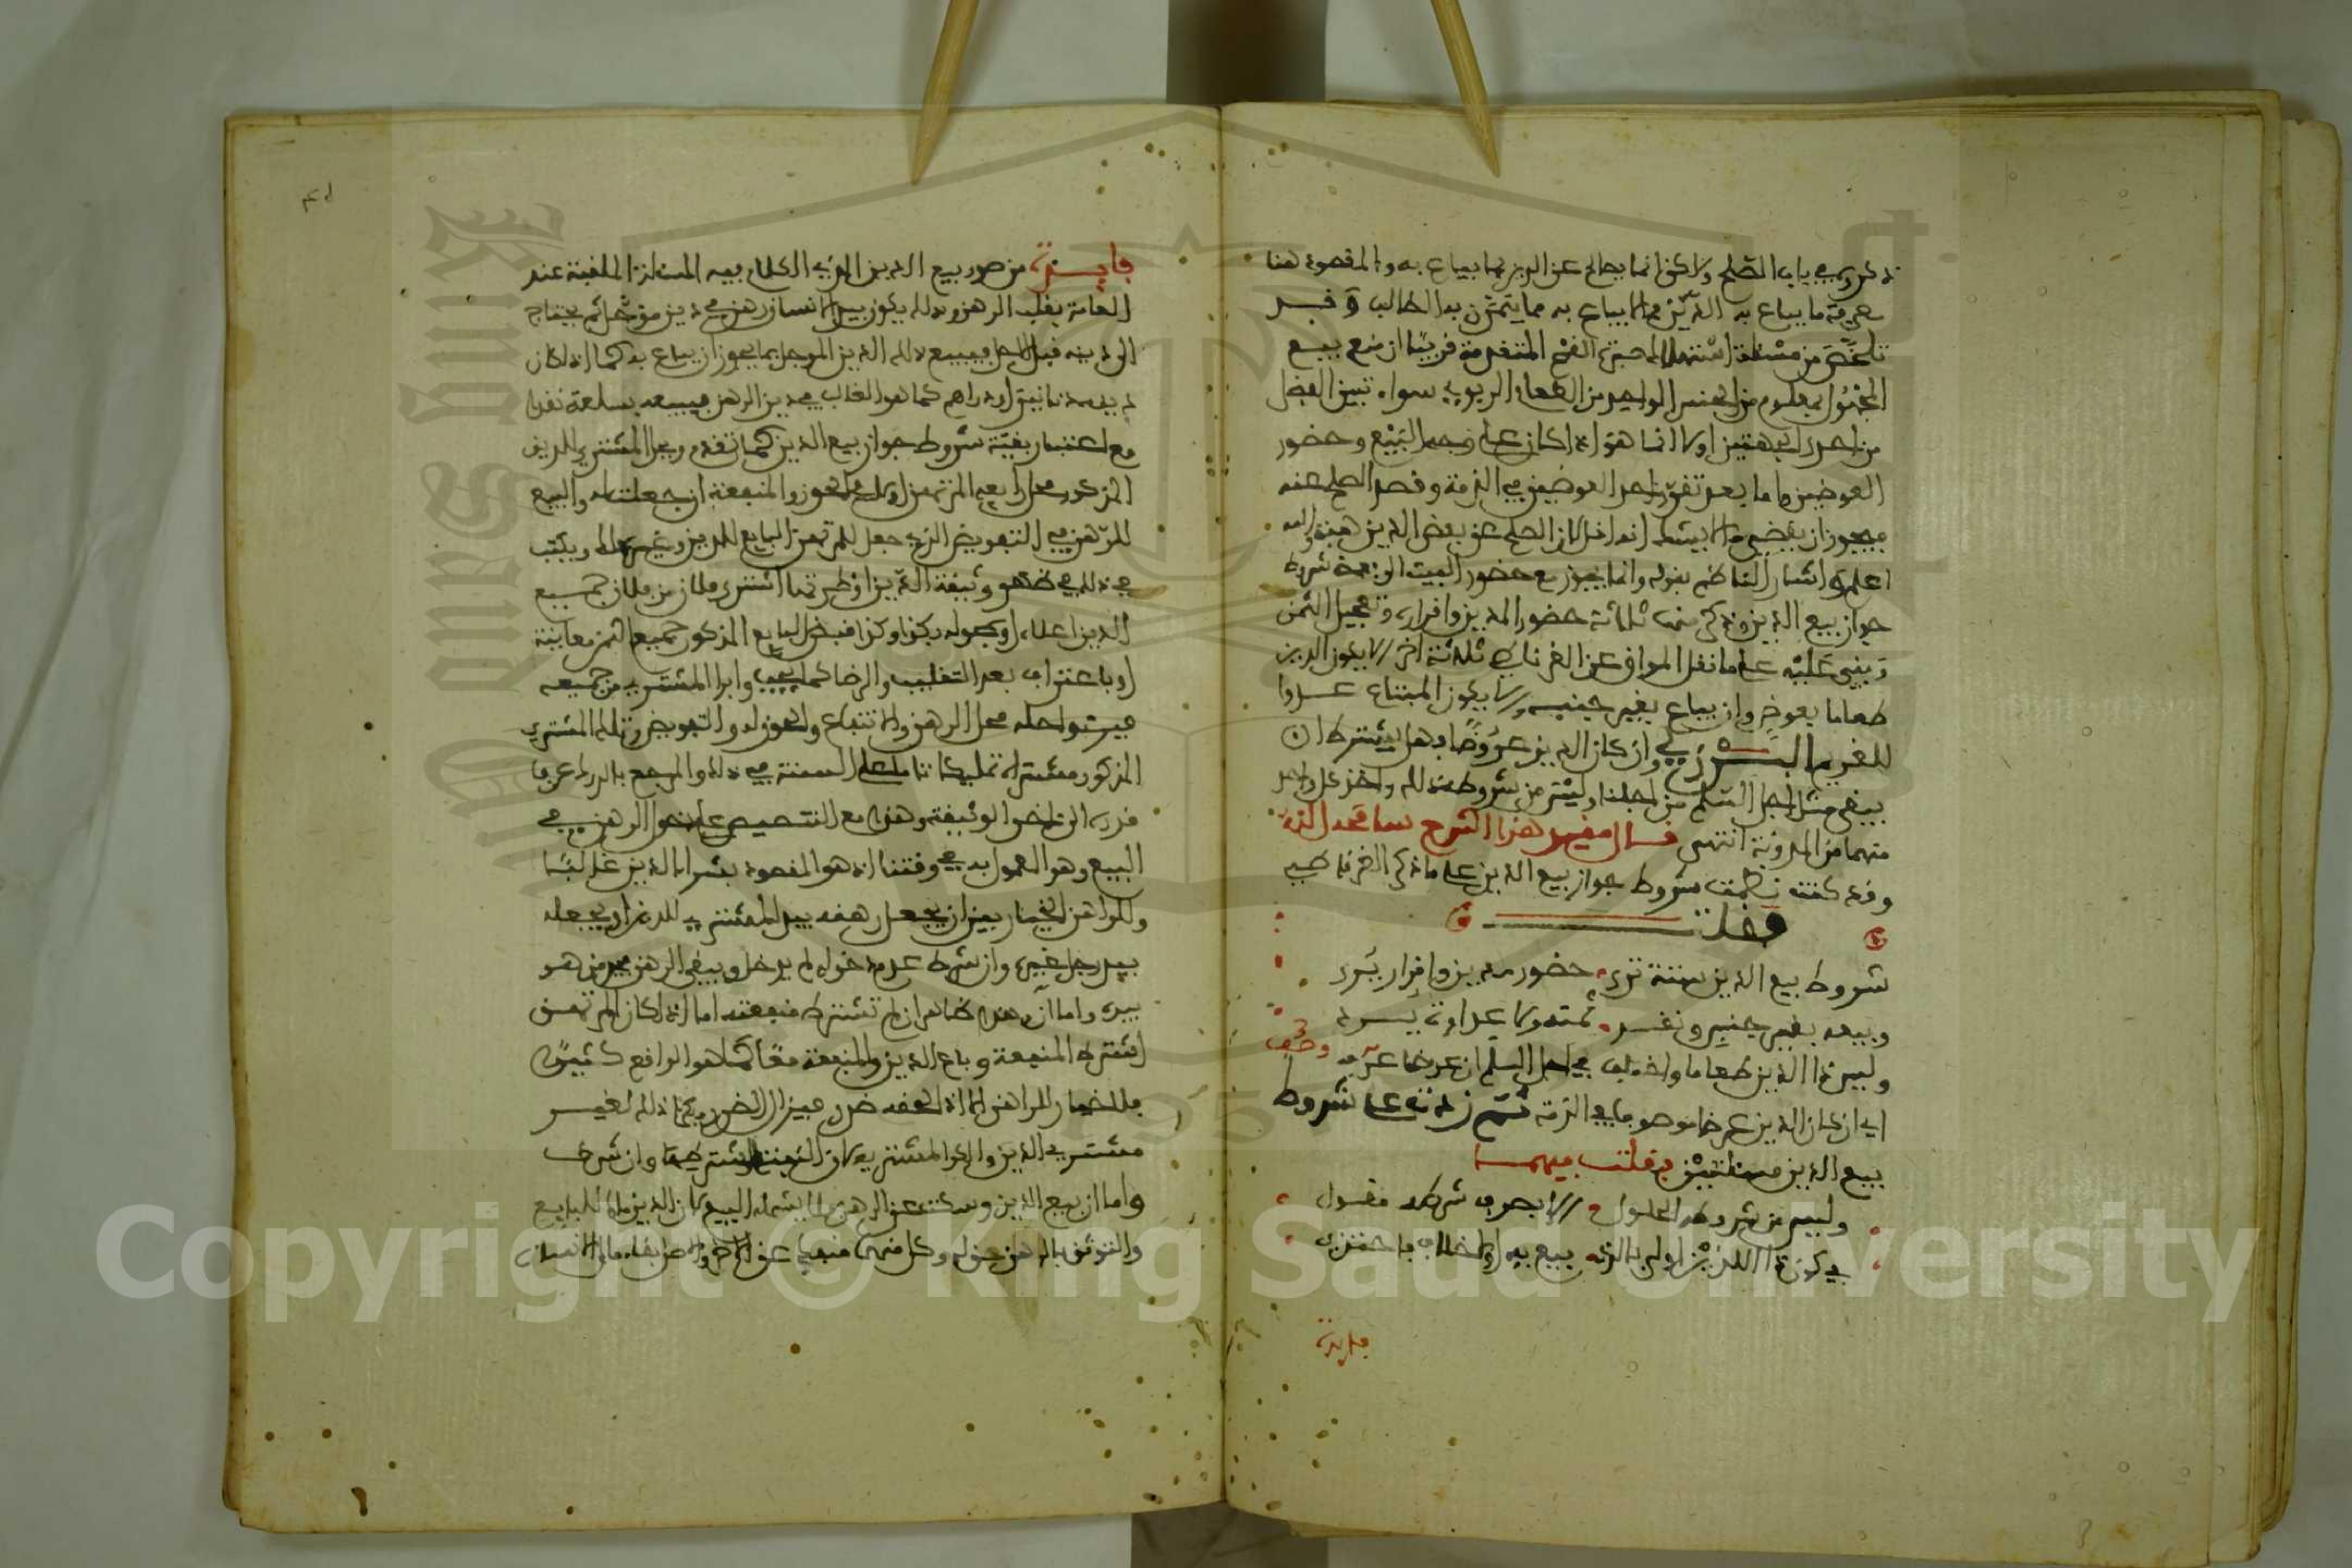 ذكروه في باب الصلح ولاكن انما يصالح عن الدين بما يباع به والمقصود هنا
معرفة ما يباع به الدين مما لا يباع به مما يتمثن به الطالب وقد
تلخص من مسئلة المتقدمة قريبا ان منع بيع
المجهول بمعلوم من الجنس الواحد من الطعام الربوي سواء تبين الفضل
من احدى الجهتين اولا انما هو اذا كان على وجه البيع وحضور
العوضين واما بعد تقرر احد العوضين في الذمة وقصد الصلح عنه
فيجوز ان يقضى ما لا يشك انه اقل لان الصلح عن بعض الدين هبة والله
اعلم واشار الناظم بقوله وانما يجوز مع حضور البيت الى بعض شروط
جواز بيع الدين وذكر منها ثلاثة حضور المدين واقراره وتعجيل الثمن
وبقي عليه على ما نقل المواق عن الغرناطي ثلاثة اخر ان لا يكون الدين
طعاما بعوض وان يباع بغير جنسه ولا يكون المبتاع عدوا
للغريم البرزلي وان كان الدين عروضا فهل يشترط ان
يبقى مثل اجل السلم من اجلها وليس من شروطه ذلك واخذ كل واحد
منهما من المدونة انتهى قال مقيد هذا الشرح سامحه الله
وقد كنت نظمت شروط جواز بيع الدين على ما ذكر الغرناطي
فقلت
شروط بيع الدين ستة ترى حضور مدين واقرار يرى
وبيعه بغير جنس ونقد ثمنه ولا عداوة يسرد
وليس ذا الدين طعاما واختلف في اجل السلم ان عرضا عرف وصف
اي ان كان الدين عرضا موصوفا في الذمة ثم زدته على شروط
بيع الدين مسئلتين فقلت فيهما
وليس من شروطه الحلول لا بصرف شرطه مقبول
في كون ذا الدين اولى بالذي بيع به او لا خلاف فاحتذي
فايدة
فايدة من صور بيع الدين الذي الكلام فيه المسئلة الملقبة عند
العامة بقلب الرهن وذلك يكون بيد الانسان رهن في دين مؤجل ثم يحتاج
الى دينه قبل الاجل فيبيع ذلك الدين المؤجل بما يجوز ان يباع به كما اذا كان
له دنانير او دراهم كما هو الغالب في دين الرهن فيبيعه بسلعة نقدا
مع اعتبار بقية شروط جواز بيع الدين كما تقدم ويحل المشتري للدين
المذكور محل بايعه المرتهن اولا في الحوز والمنفعة ان جعلت له والبيع
للرهن في التفويض الذي جعل للمرتهن البايع للدين وغير ذلك ويكتب
في ذلك في ظهر وثيقة الدين او طرتها اشترى فلان من فلان جميع
الدين اعلاه او حوله بكذا وكذا قبض البايع المذكور جميع الثمن معاينة
او باعتراف بعد التقليب والرضا كما يجب وابرا المشتري من جميعه
فبرئ واحله محل الرهن والانتفاع والحوز له والتفويض وتملك المشتري
المذكور مشتراه تملكا تاما على السنة في ذلك والمرجع بالدرك عرفا
قدره الى اخر الوثيقة وهذا مع التنصيص على دخول الرهن في
البيع وهو المعمول به في وقتنا اذ هو المقصود بشراء الدين غالبا
وللراهن الخيار بين ان يجعل رهنه بيد المشتري للدين او يجعله
بيد رجل غيره وان شرط عدم دخوله لم يدخل ويبقى الرهن بيد من هو
بيده واما ان هذا ظاهر ان لم تشترط منفعته اما اذا كان المرتهن
اشترط المنفعة وباع الدين والمنفعة معا كما هو الواقع كثيرا
فلا خيار للراهن الا اذا لحقه ضرر فيزال الضرر بكراء ذلك لغير
مشتري الدين والا فالمشتري لان المنفعة اشترطها وان شرط
واما ان بيع الدين وسكت عن الرهن فلا يشمله البيع لان الدين مال للبايع
والتوثق بالرهن حق له وكل منهما منفك عن الاخر والاصل بقاء مال الانسان